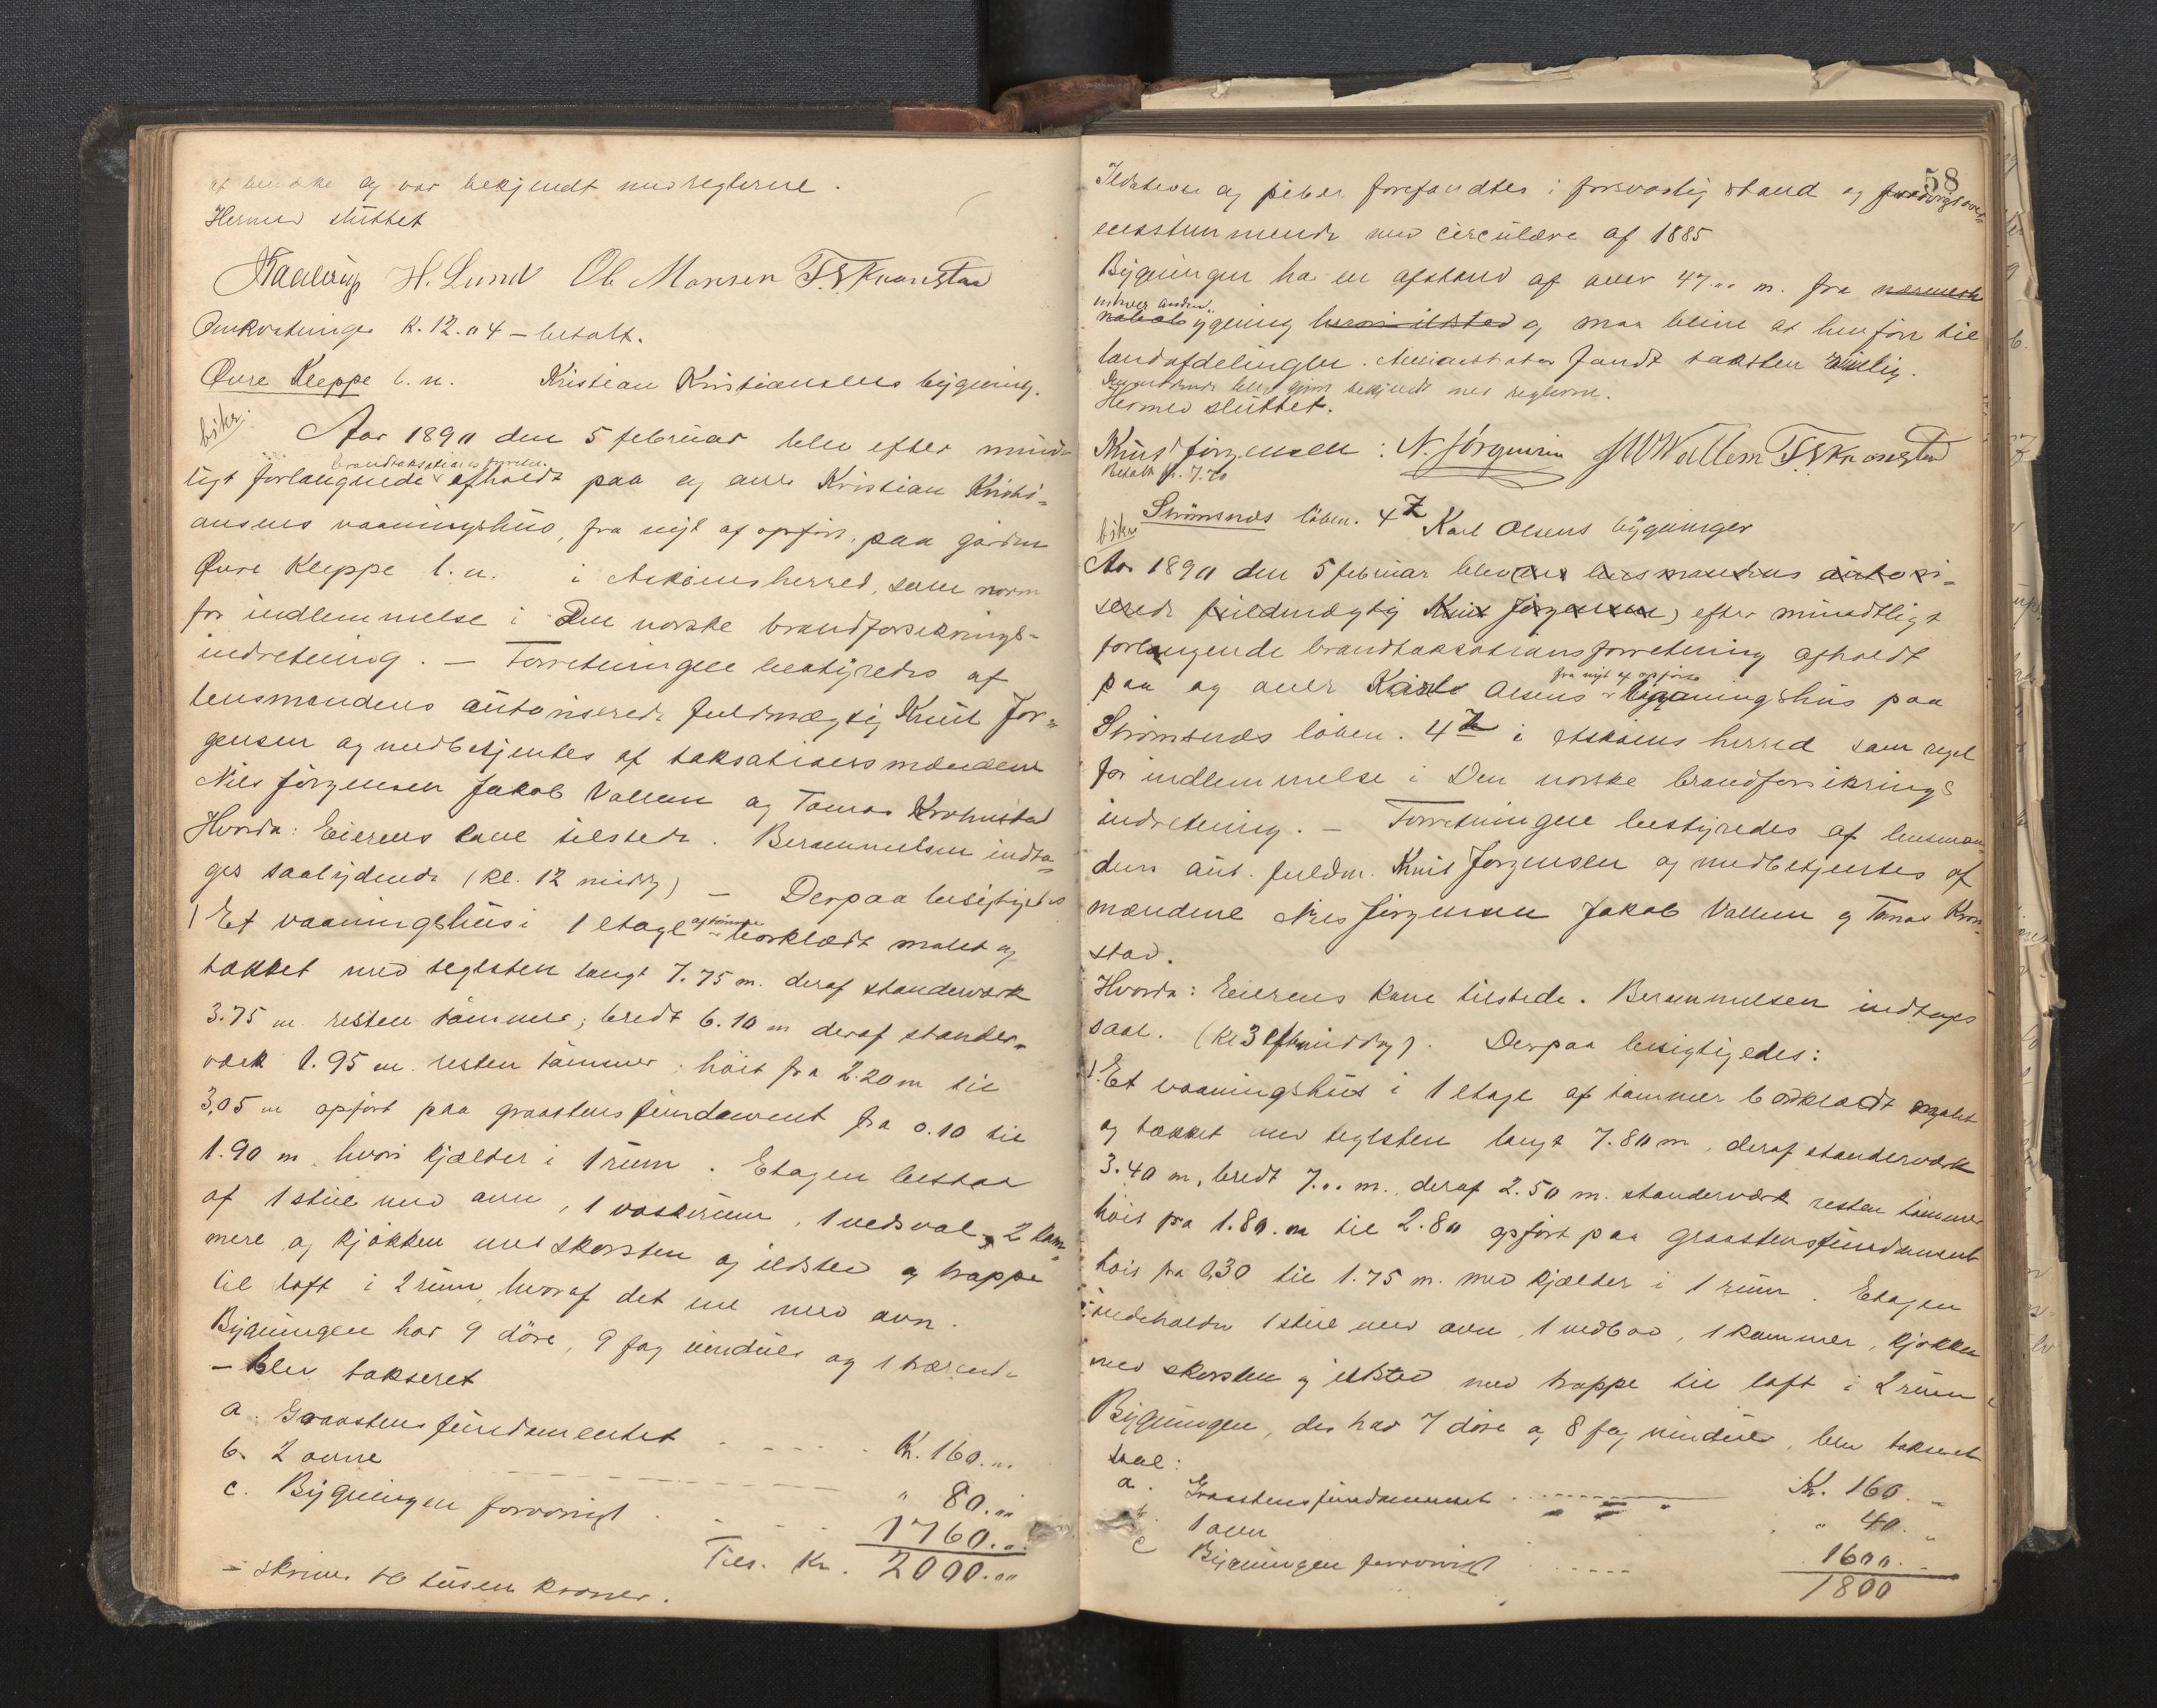 og var bekjendt med reglerne.
Hermed sluttet
H. Lund Ole Monsen T. S. Kronstad
Omkostninger K. 12.04 – betalt.
Øvre Kleppe b. n. Kristian Kristiansens bygning.
bskr.
Aar 1890 den 5 februar blev efter mundt
ligt forlangende brandtaksationsforretn. afholdt paa og over Kristian Kristi-
ansens vaaningshus, fra nyt af opført, paa gården
Øvre Kleppe l. n. i Askøens herred, som norm
for indlemmelse i Den norske brandforsikrings-
indretning. – Forretningen bestyredes af
lensmandens autoriserede fuldmægtig Knut Jør-
gensen og medbetjentes af taksationsmændene
Nils Jörgensen Jakob Vallem og Tomas Krohnstad
Hvorda: Eierens kone tilstede. Berammelsen indta-
ges saalydende (kl. 12 middg) – Derpaa besigtigedes
1 Et vaaningshus i 1 etage af tömmer bordklædt malet og
tækket med teglsten langt 7.75 m. deraf standerværk
3.75 m resten tömmer; bredt 6.10 m deraf stander-
værk 1.95 m. resten tömmer; höit fra 2.20 m til
3,05 m opført paa graastensfundament fra 0.10 til
1.90 m. hvori kjælder i 1 rum. Etagen bestaar
af 1 stue med ovn, 1 vaskerum, 1 vedsval, 2 kam-
mere og kjøkken med skorsten og ildsted og trappe
til loft i 2 rum, hvoraf det ene med ovn.
Bygningen har 9 döre, 9 fag vinduer og 1
– blev takseret
a. Graastensfundamentet Kr. 160...
b. 2 ovne " 80...
c. Bygningen forövrigt 1760...
Tils. Kr. 2000...
– skriver to tusen kroner.
58
Ildsteder og piber forefandtes i forsvarlig stand og forövrigt over-
ensstemmende med circulære af 1885
Bygningen har en afstand af over 47... m. fra nærmeste
enhver anden
bygning og maa blive at henføre til
landafdelingen. Administrator fandt taksten rimelig.
blev gjort bekjendt med reglerne.
Hermed sluttet.
Knut Jörgensen : N. Jörgensen J W Wallem T S Kronstad
Betalt kr. 7.70
Strömsnæs löben. 4 Z Karl Olsens bygninger
bskr.
Aar 1890 den 5 februar blev (av lensmandens autori-
serede fuldmægtig Knut Jörgensen) efter mundtligt
forlangende brandtaksationsforretning afholdt
fra nyt af opførte
paa og over Karls Olsens vaaningshus paa
Strömsnæs löben. 4 Z i Askøens herred som regel
for indlemmelse i Den norske brandforsikrings
indretning. – Forretningen bestyredes af lensman-
dens aut. fuldm. Knut Jörgensen og medbetjentes af
mændene Nils Jörgensen Jakob Vallem og Tomas Kron-
stad.
Hvorda: Eierens kone tilstede. Berammelsen indtages
saal. (kl 3 eftmiddg). Derpaa besigtigedes:
1. Et vaaningshus i 1 etage af tömmer bordklædt malet
og tækket med teglsten langt 7.80 m, deraf standerværk
3.40 m, bredt 7... m. deraf 2.50 m. standerværk resten tömmer
höit fra 1.80. m til 2.80 opført paa graastensfundament
höit fra 0,30 til 1.75 m. med kjælder i 1 rum. Etagen
indeholder 1 stue med ovn, 1 vedbod, 1 kammer, kjøkken
med skorsten og ildsted med trappe til loft i 2 rum
Bygningen, der har 7 döre og 8 fag vinduer, blev takseret
saal:
a. Graastensfundamentet Kr. 160. "
b. 1 ovn " 40. "
c Bygningen forövrigt 1600. "
1800